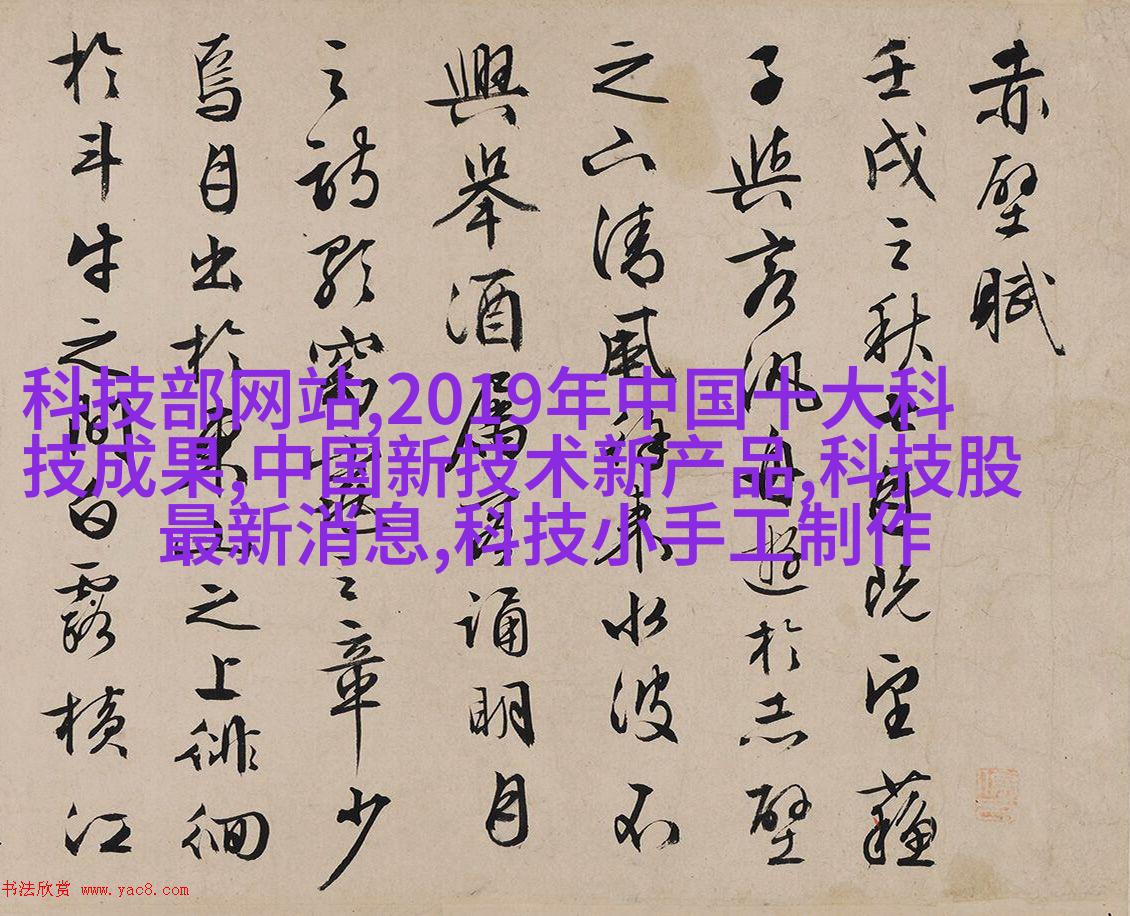 赤壁賦
壬戌之秋七月既望蘓
子與客汎舟遊於赤壁
之下清風徐来水波不
興舉酒屬客誦明月
之詩歌窈窕之章少
焉月出於東山之上徘徊
於斗牛之間白露横江
科技部网站,2019年中国十大科
技成果,中国新技术新产品,科技股
最新消息,科技小手工制作
书法欣赏 www.yac8.com